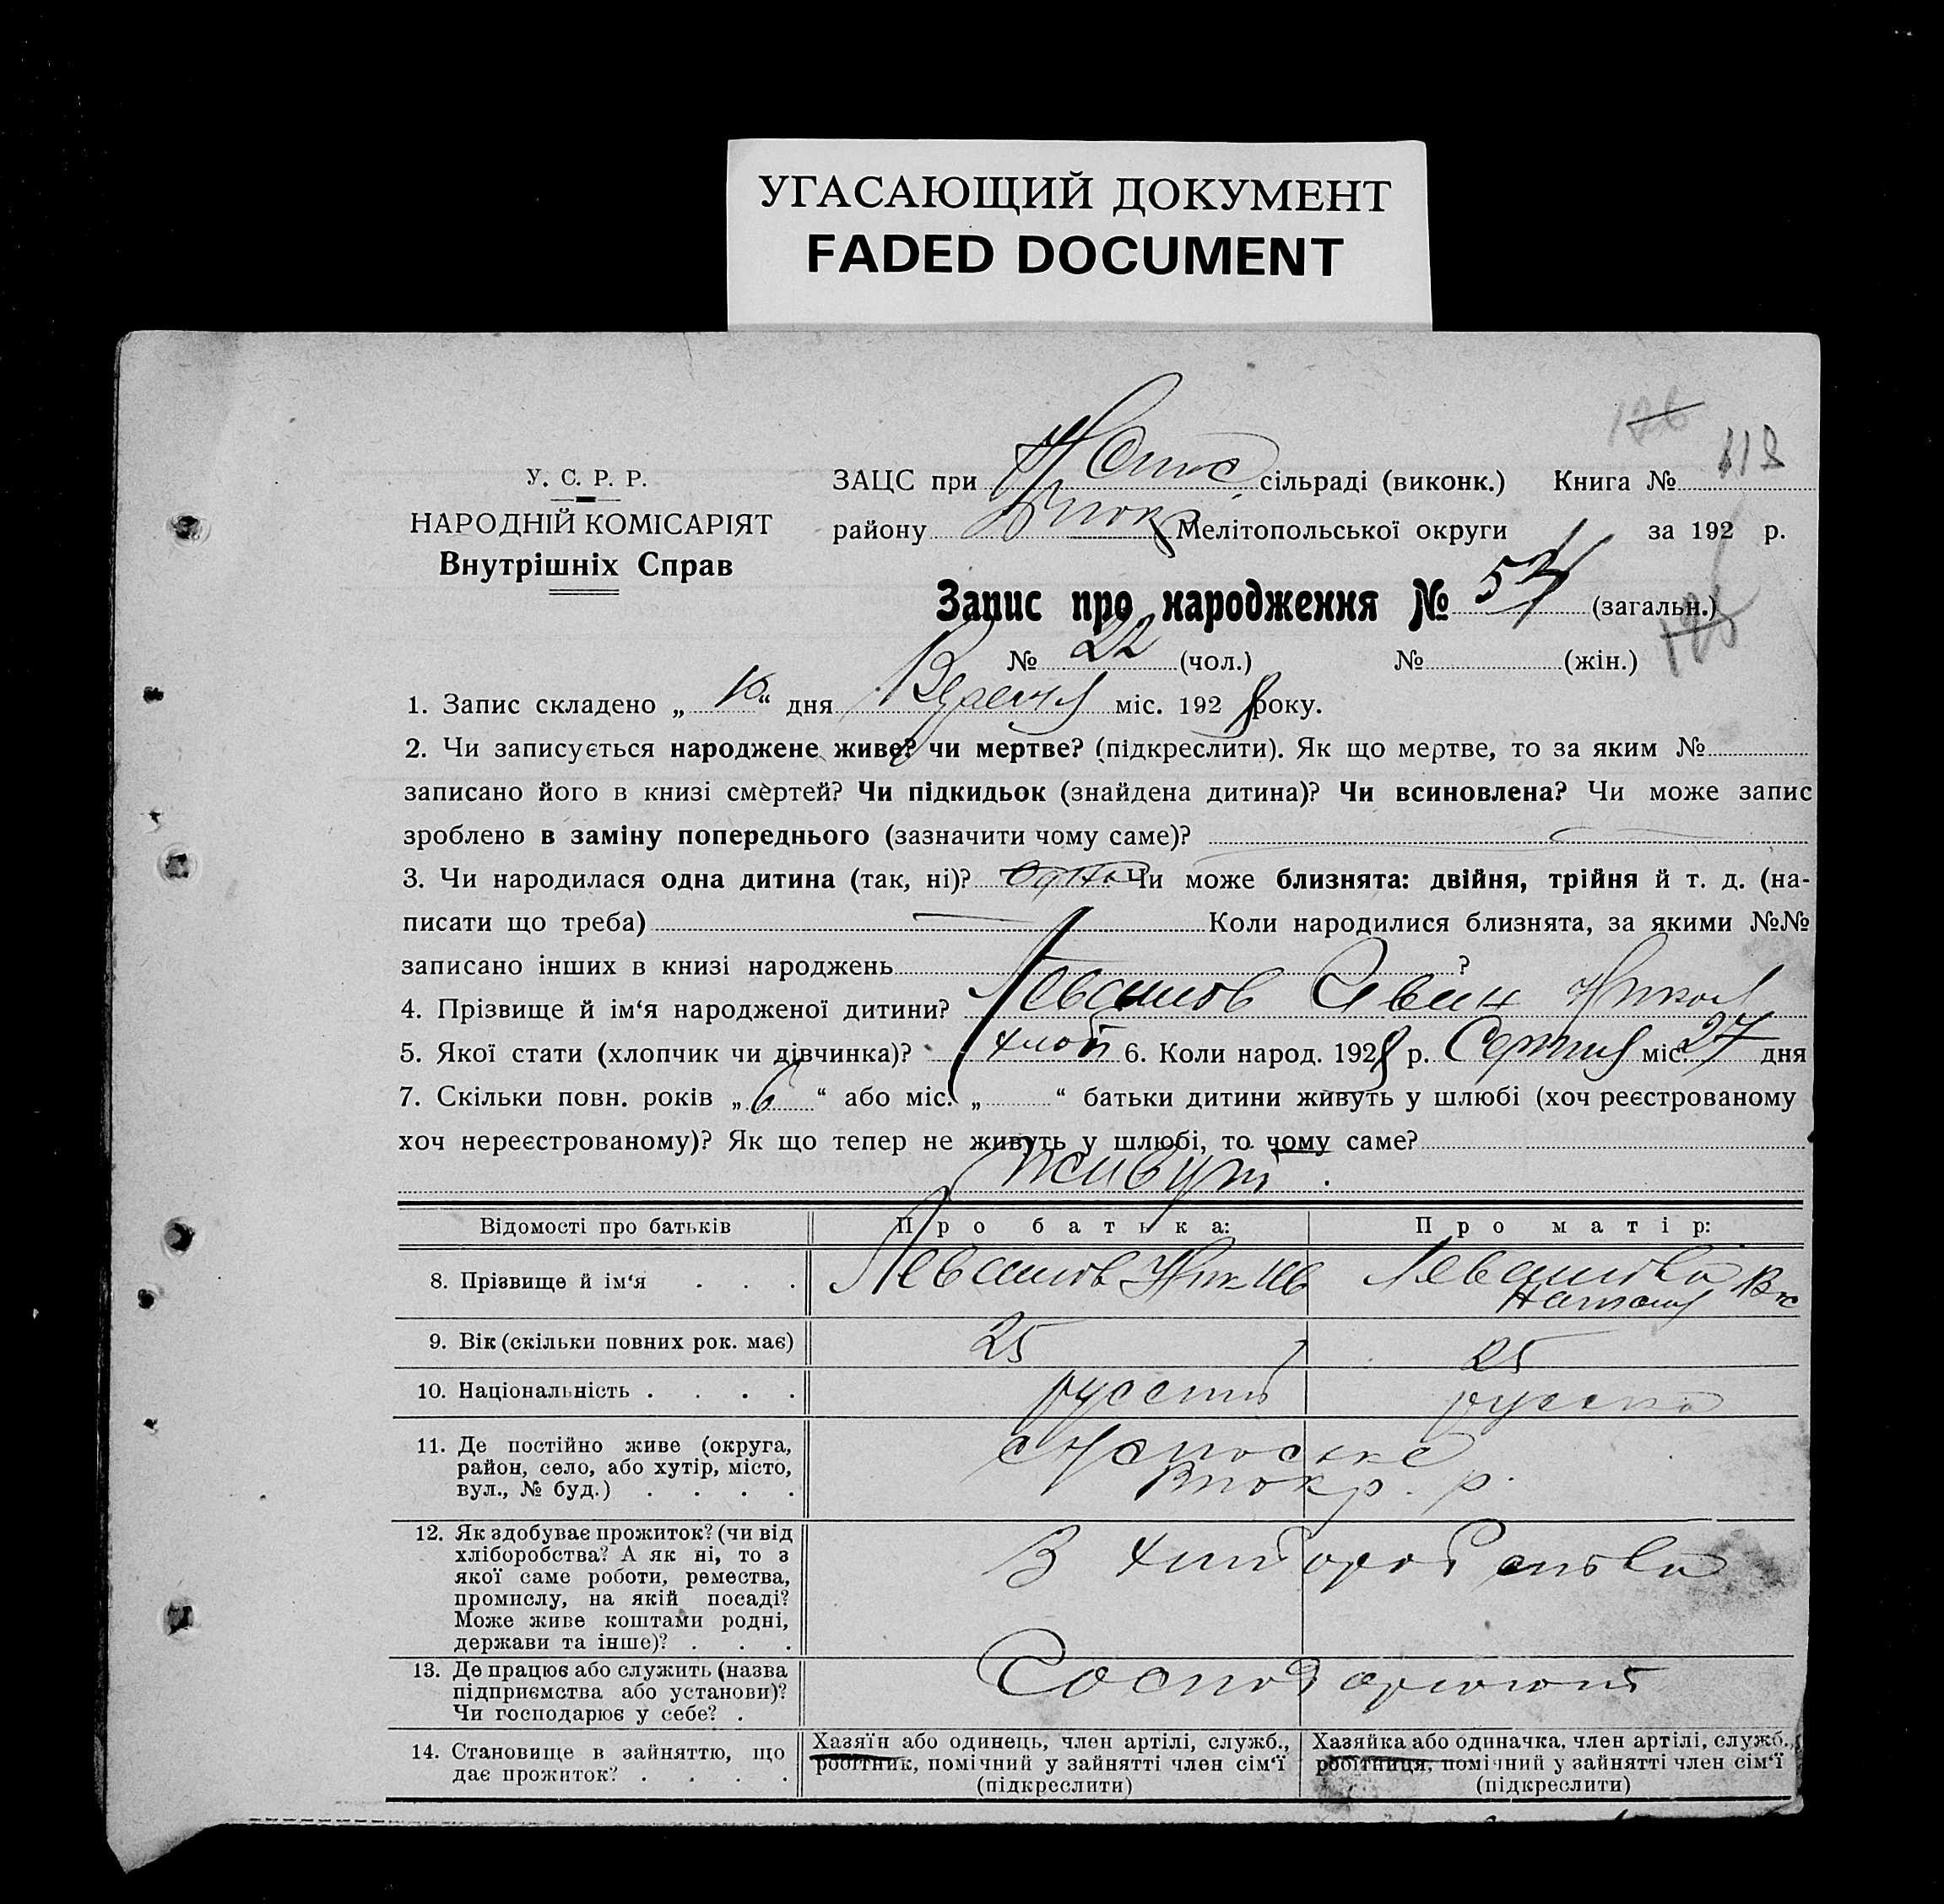 УГАСАЮЩИЙ ДОКУМЕНТ
FADED DOCUMENT
126
113
У. С. Р. Р.
НАРОДНІЙ КОМІСАРІЯТ
Внутрішніх Справ
ЗАЦС при сільраді (виконк.) Книга №
району Мелітопольської округи за 192 р.
Запис про народження № 53 (загальн.)
№ 22 (чол.) № (жін.)
1. Запис складено „ 10 “ дня Вересня міс. 1928 року.
2. Чи записується народжене живе? чи мертве? (підкреслити). Як що мертве, то за яким №
записано його в книзі смертей? Чи підкидьок (знайдена дитина)? Чи всиновлена? Чи може запис
зроблено в заміну попереднього (зазначити чому саме)?
3. Чи народилася одна дитина (так, ні)? одна Чи може близнята: двійня, трійня й т. д. (на-
писати що треба) Коли народилися близнята, за якими №№
записано інших в книзі народжень ?
4. Прізвище й ім‘я народженої дитини? Левашов Иван Никол
5. Якої стати (хлопчик чи дівчинка)? хлоп 6. Коли народ. 1928 р. Серпня міс. 27 дня
7. Скільки повн. років „ 6 “ або міс. „ “ батьки дитини живуть у шлюбі (хоч реєстрованому
хоч нереєстрованому)? Як що тепер не живуть у шлюбі, то чому саме?
живуть.
Відомості про батьків Про батька: Про матір:
8. Прізвище й ім‘я . . . Левашов Ник Ив Левашова Наталія
9. Вік (скільки повних рок. має) 25 25
10. Національність . . . . русский русска
11. Де постійно живе (округа,
район, село, або хутір, місто,
вул., № буд.) . . . .
р.
12. Як здобуває прожиток? (чи від
хліборобства? А як ні, то з
якої саме роботи, ремества,
промислу, на якій посаді?
Може живе коштами родні,
держави та інше)? . . .
З хліборобства
13. Де працює або служить (назва
підприємства або установи)?
Чи господарює у себе? .
Господарюют
14. Становище в зайняттю, що
дає прожиток? . . . .
Хазяїн або одинець, член артілі, служб.,
робітник, помічний у зайнятті член сім‘ї
(підкреслити)
Хазяйка або одиначка, член артілі, служб.,
робітниця, помічний у зайнятті член сім‘ї
(підкреслити)